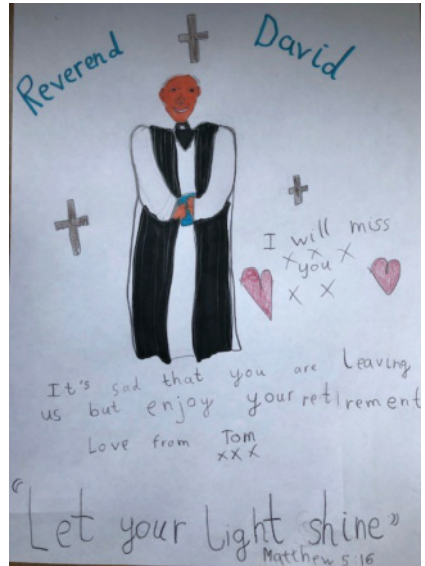 Reverend David
I will miss
x x x
you
x x
It's sad that you are Leaving
us but enjoy your retirement
Love from Tom
xxx
"Let your Light shine"
Matthew 5:16